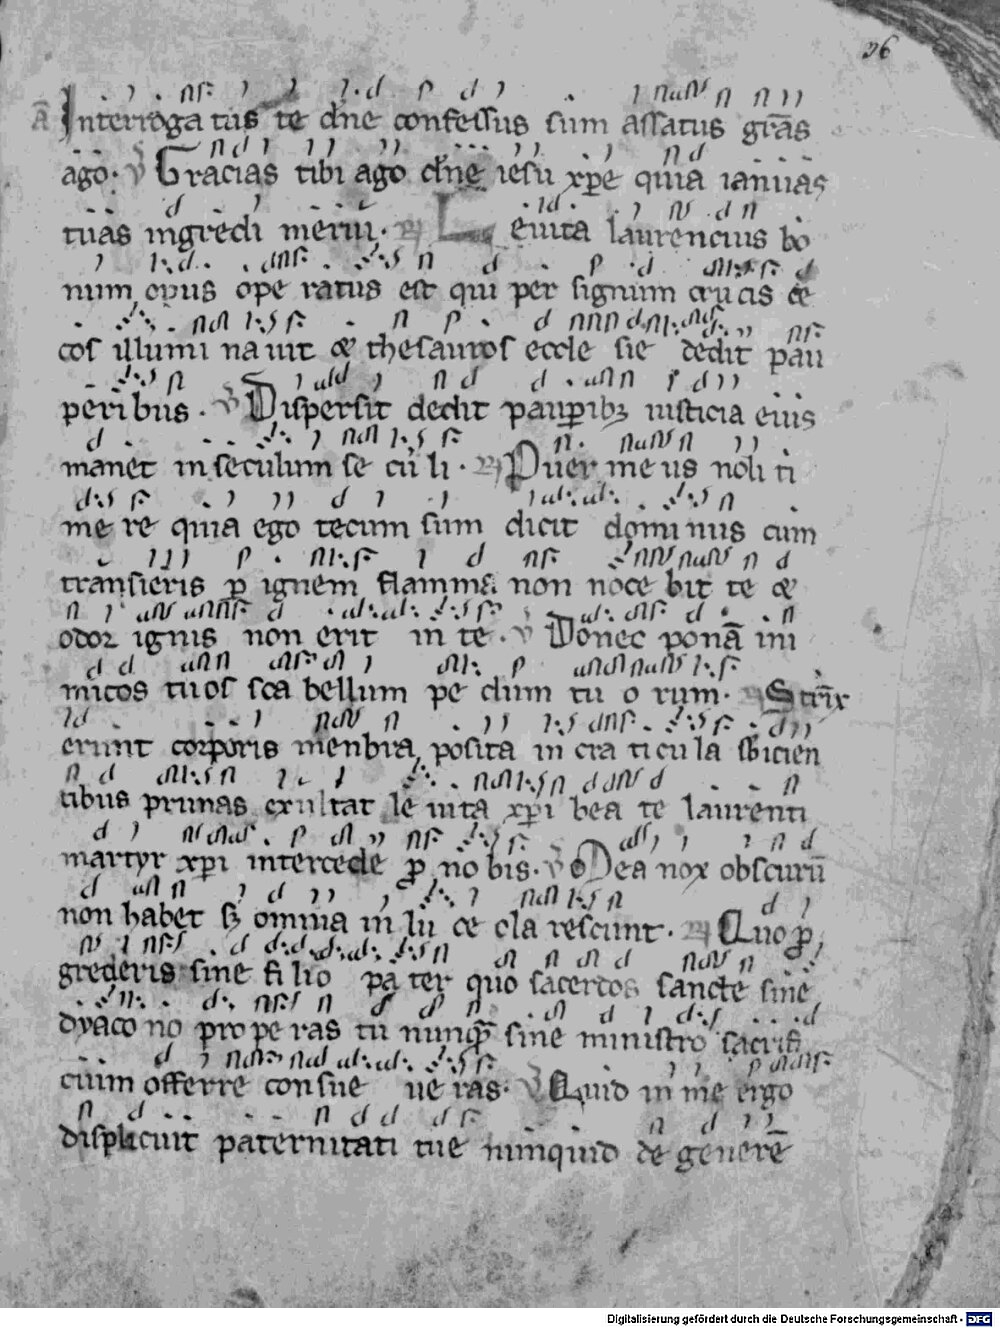 26
A Interrogatus te dñe confessus sum assatus gr̃as
ago. V Gracias tibi ago dñe iesu xp̄e quia ianuas
tuas ingredi merui. R Leuita laurencius bo
num opus ope ratus est qui per signum crucis ce
cos illumi nauit & thesauros eccle sie dedit pau
peribus. V Dispersit dedit paup̱ibꝫ iusticia eius
manet in seculum se cu li. R Puer me us noli ti
me re quia ego tecum sum dicit dominus cum
transieris p̱ ignem flamma non noce bit te &
odor ignis non erit in te. V Donec ponā ini
micos tuos sca bellum pe dum tu o rum. Strĩx
erunt corporis menbra posita in cra ti cu la sbicien
tibus prunas exultat le uita xp̄i bea te laurenti
martyr xp̄i intercede p̱ no bis. V Mea nox obscurū
non habet sꝫ omnia in lu ce cla rescunt. R Quo p̱
grederis sine fi lio pa ter quo sacerdos sancte sine
dyaco no pro pe ras tu nunq̄ sine ministro sacrifi
cium offerre con sue ue ras. V Quid in me ergo
displicuit paternitati tue nunquid de generē
Digitalisierung gefördert durch die Deutsche Forschungsgemeinschaft - DFG